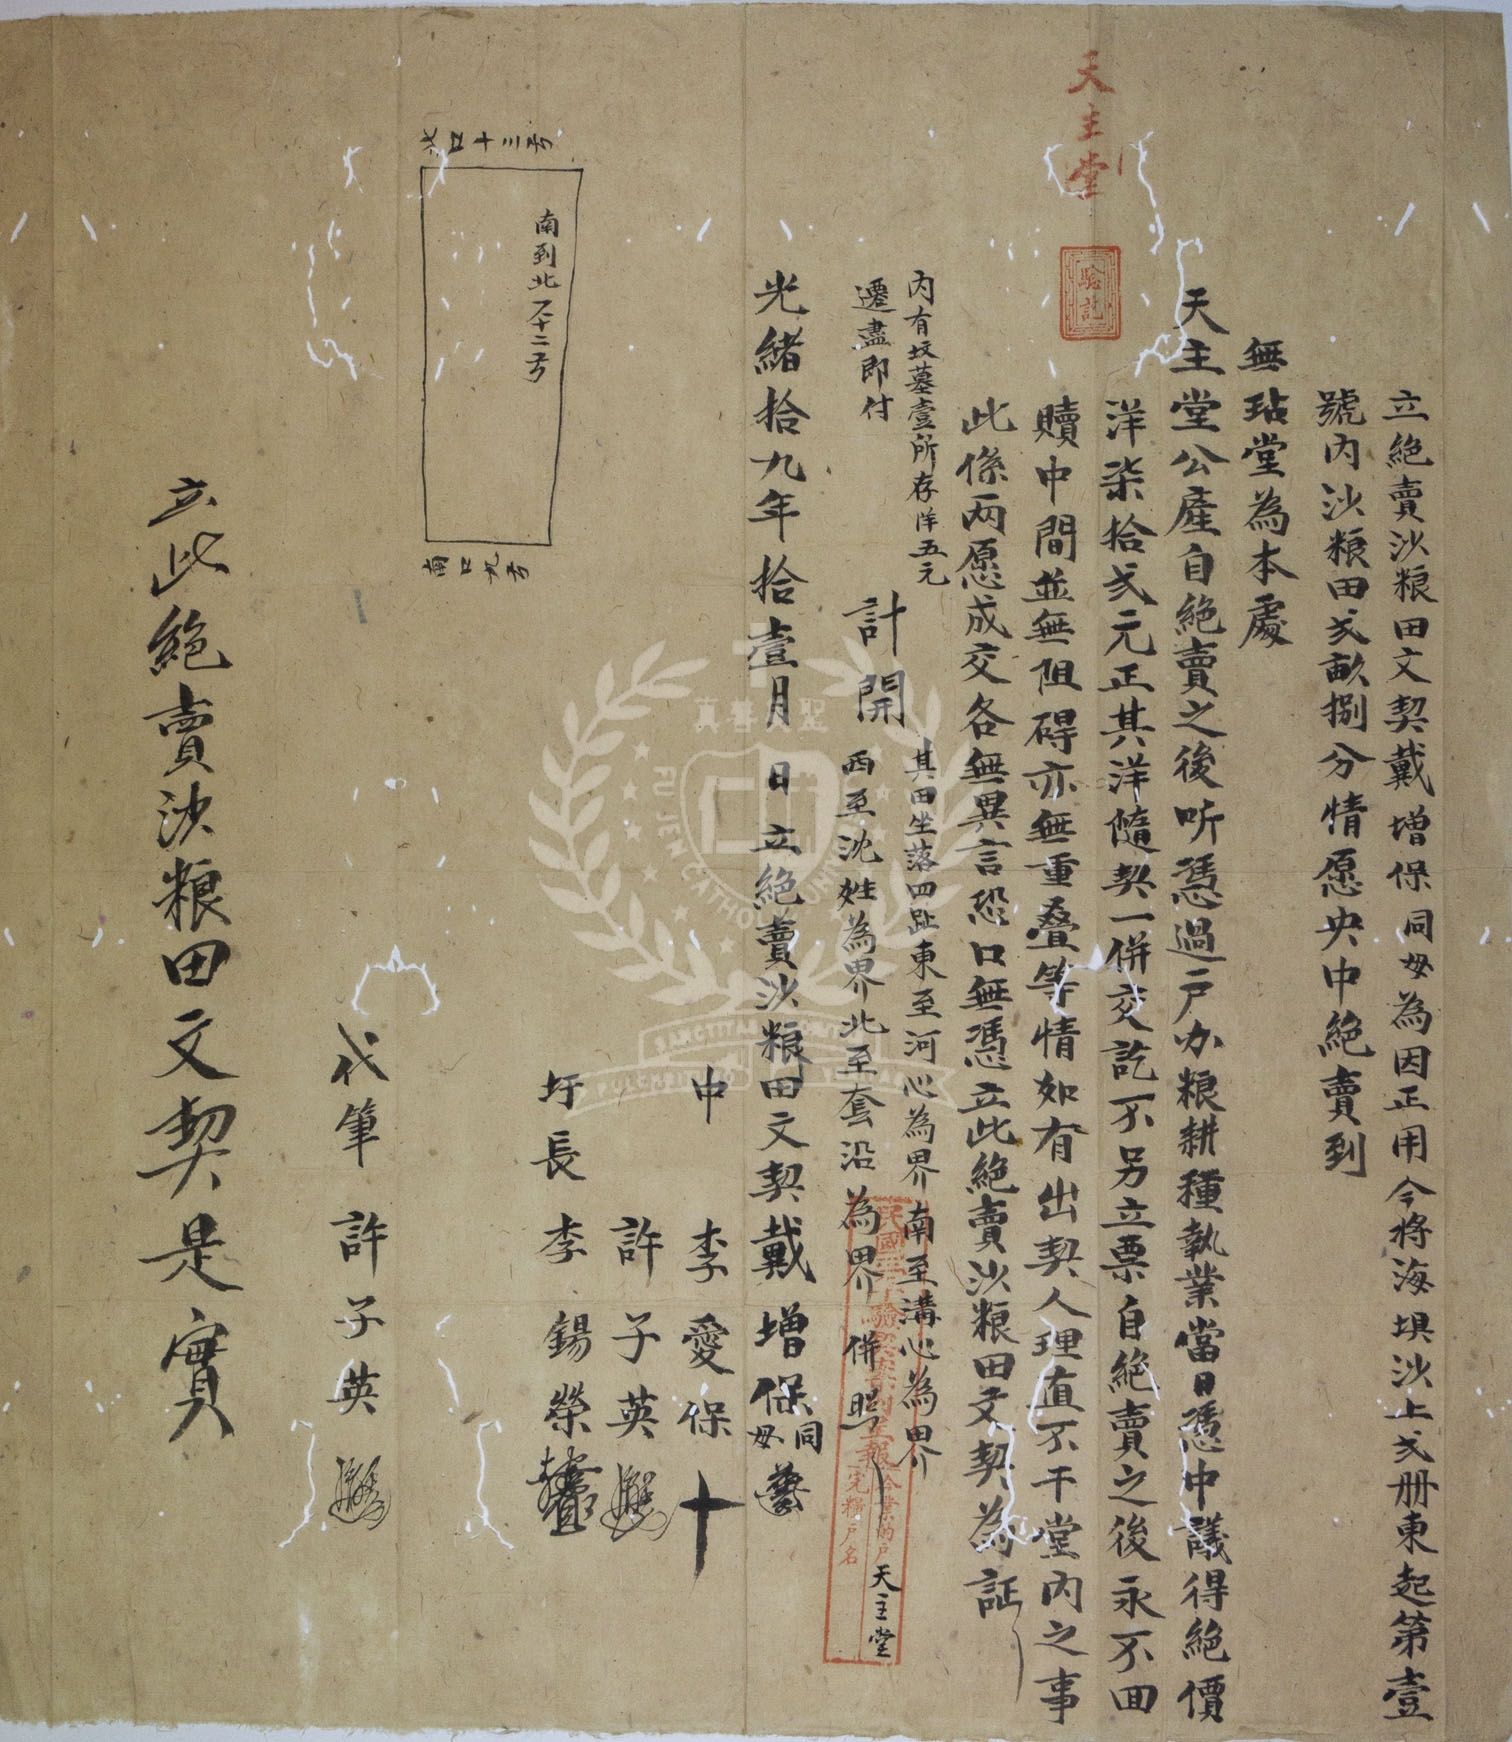 天主堂
驗訖
立絕賣沙粮田文契戴增保同母為因正用今將海壩沙上弍册東起第壹
號內沙粮田弍畝捌分情愿央中絕賣到
無玷堂為本處
天主堂公產自絕賣之後听憑過戶办粮耕種執業當日憑中議得絕價
洋柒拾弍元正其洋隨契一併交訖不另立票自絕賣之後永不回
贖中間並無阻碍亦無重叠等情如有出契人理直不干堂內之事
此係兩愿成交各無異言恐口無憑立此絕賣沙粮田文契為証
內有坟墓壹所存洋五元
遷盡即付
計開
其田坐落四趾東至河心為界南至溝心為界
西至沈姓為界北至套沿為界 併照
執業的戶天主堂
完糧戶名
光緒拾九年拾壹月 日立絕賣沙粮田文契戴增保同母
中 李愛保 十
許子英
圩長 李錫榮
代筆 許子英
北口十三号
南到北 十二号
南口九号
立此絕賣沙粮田文契是實
聖美善真
FU JEN CATHOLIC UNIVERSITY